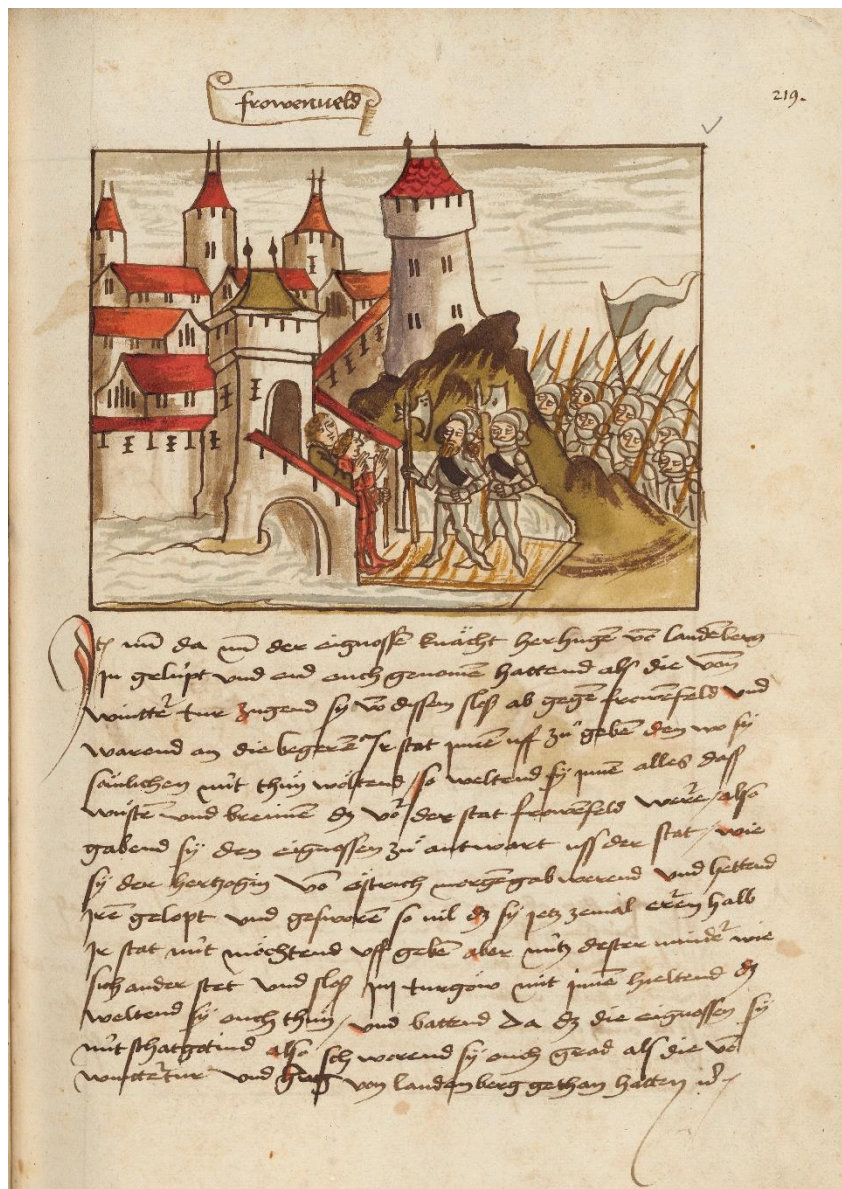 frowenveld
219.
Itē nun da nun der eignossen knächt her hugen vō landenberg
In gelüpt und eid ouch genomen hattend als die von
wintter tur zugend sy vō dissem sloß ab gegē frowēfeld und
warend an die begerē Ir stat jnnen uff zů geben den wo sy
sömlichen nüt thůn wöltend / so weltend sy jnnen alles daß
wüsten und brennen dz vor der stat frowēfeld were / also
gabend sy den eignossen zů antwart uss der stat / wie
sy der hertzogin vō östrich morgēgab werend und hettend
jren gelopt und gesworē so vil dz sy jetz zemal erēn halb
Ir stat nüt möchtend uff gebē aber nütz dester minder wie
sich ander stet und sloß jm turgöw mit jnnē hieltend dz
weltend sy ouch thůn / und battend da dz die eignossen sy
nüt schatgetind also schworend sy ouch grad als die vō
winttertur und von landemberg gethan hatten